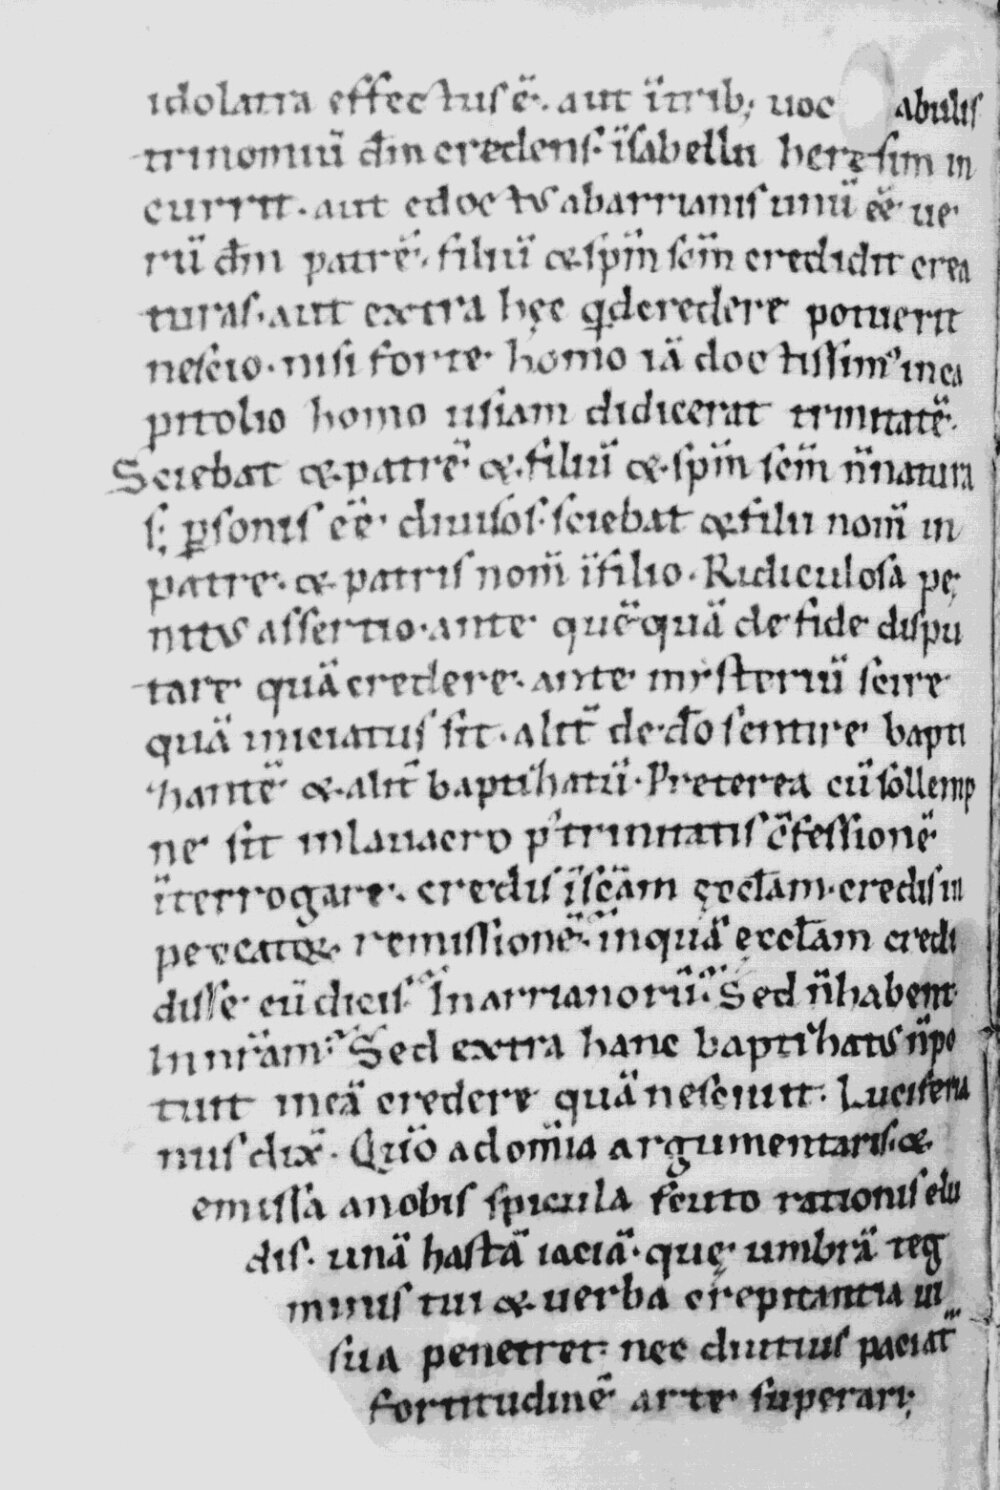 idolatra effectus ē. aut ı̄trib; uoc abulis
trinomiū dm̄ credens. ı̄sabellii heręsim in
currit. aut edoctus abarrianis unū eē ue
rū dm̄ patrē. filiū & spm̄ scm̄ credidit crea
turas. aut extra hęc qd credere potuerit
nescio. nisi forte homo iā doctissim' inca
pitolio homo usiam didicerat trinitatē.
Sciebat & patrē & filiū & spm̄ scm̄ n̄natura
s; ꝑsonis eē diuisos. sciebat & filii nom̄ in
patre. & patris nom̄ ı̄filio. Ridiculosa pę
nitus assertio. ante quēquā de fide dispu
tare quā credere. ante mysteriū scire
quā iniciatus sit. alit̄ de do sentire bapti
hantē & alit̄ baptihatū. Preterea cū sollemp
ne sit inlauacro p' trinitatis c̄fessionē
ı̄terrogare. credis ı̄scām ęcclam. credis in
peccatoꝝ remissionē. inquā ęcclam credi
disse eū dicis. In arrianorū. Sed n̄habent.
In nrām. Sed extra hanc baptihatus n̄po
tuit ineā credere quā nesciuit. Luciferia
nus dix̄. Qūo adom̄ia argumentaris. &
emissa anobis spicula scuto rationis elu
dis. unā hastā iaciā. quę umbrā teg
minis tui & uerba crepitantia ui
sua penetret. nec diutius paciat̄
fortitudinē arte superari;